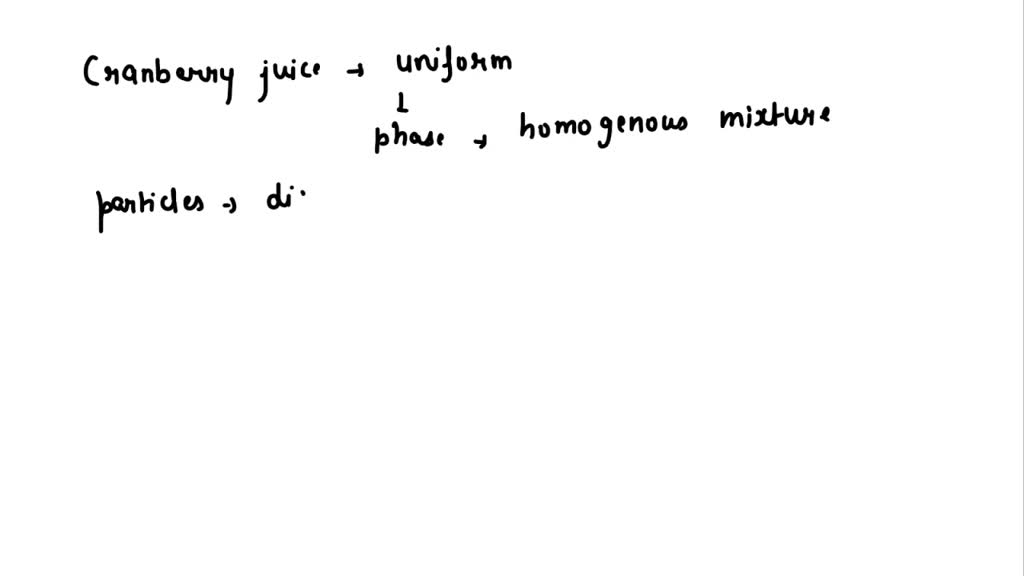 Cranberry juice → uniform
↓
phase → homogenous mixture
particles → di